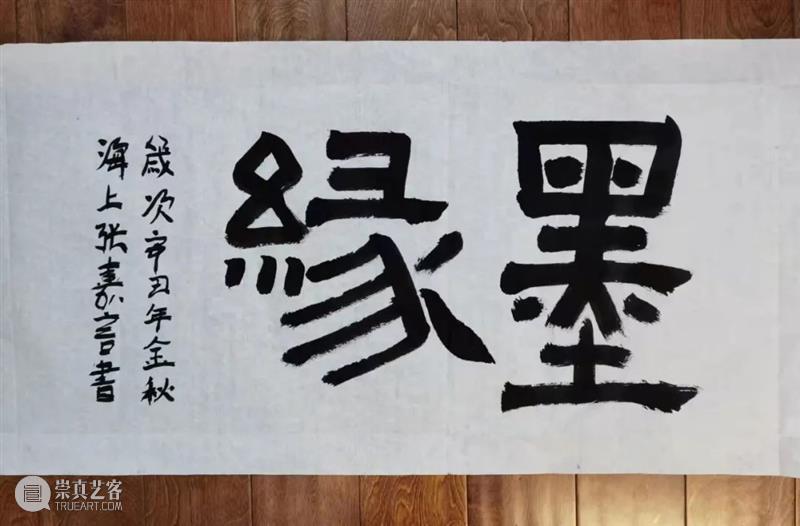 墨緣
歲次辛丑年金秋
海上张嘉言書
崇真艺客
TRUEART.COM